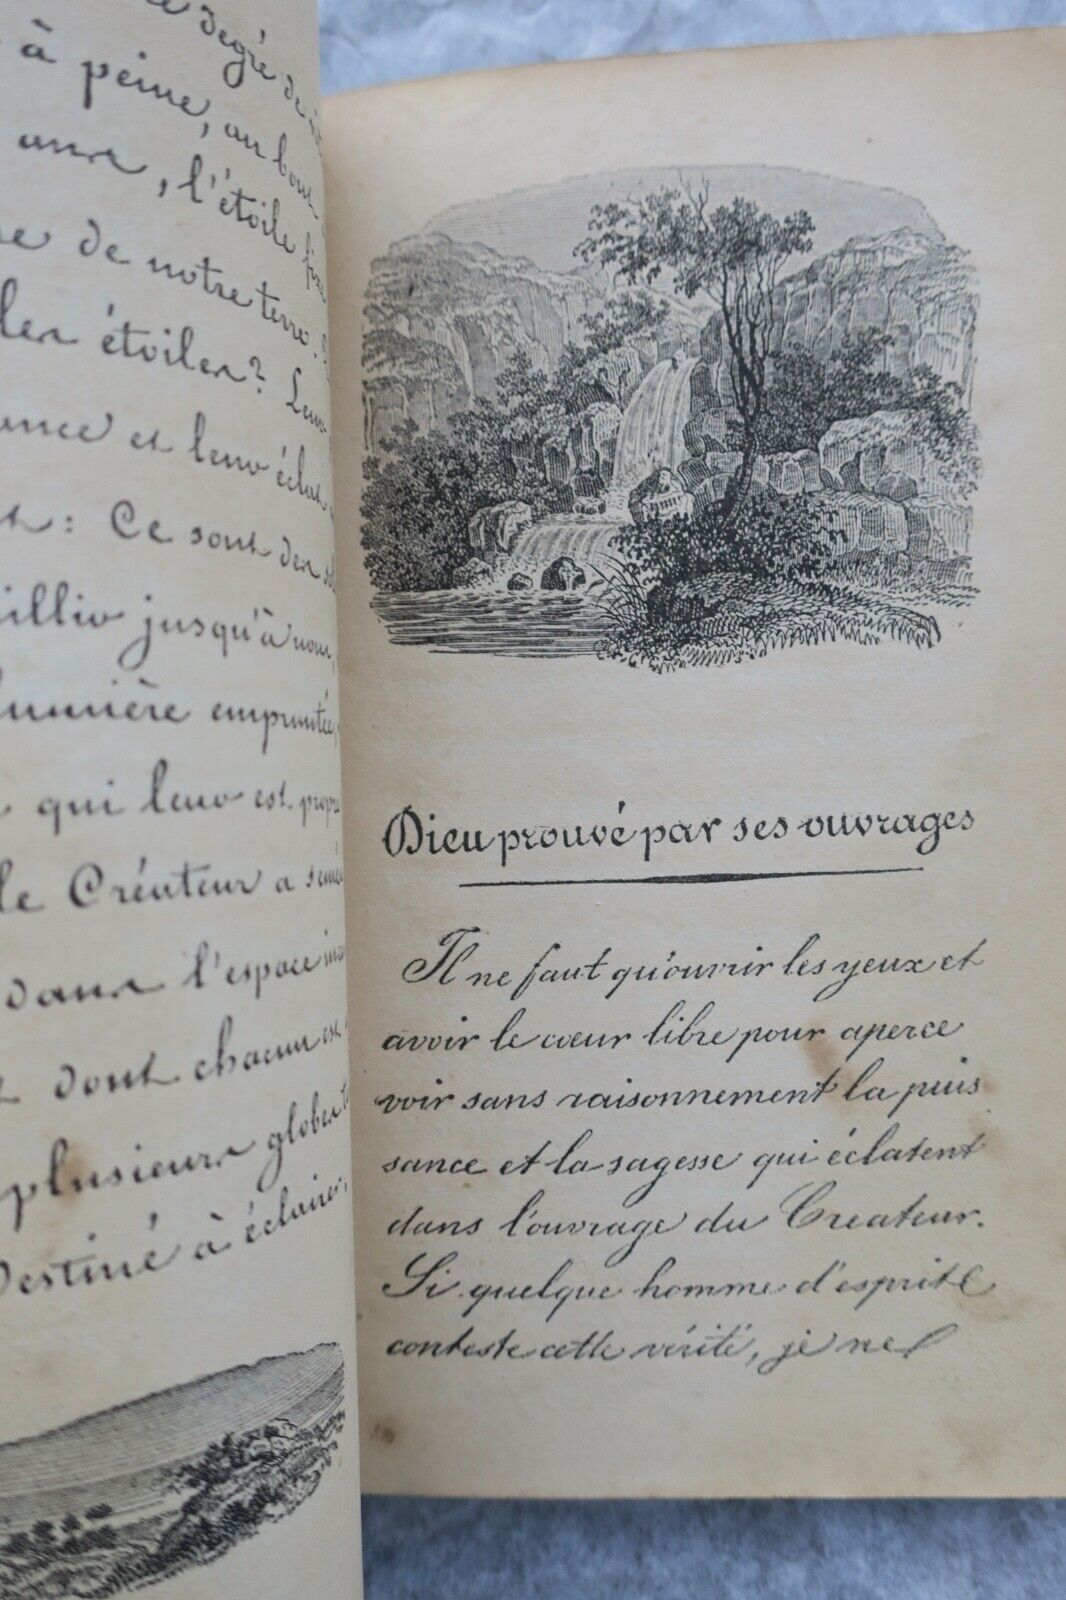 degré de
à peine, au bout
ans, l'étoile fixe
de notre terre.
les étoiles? Leur
et leur éclat
: Ce sont des
jusqu'à nous,
lumière empruntée,
qui leur est propre
le Créateur a semé
dans l'espace
dont chacun est
plusieurs globes
Destiné à éclairer,
Dieu prouvé par ses ouvrages
Il ne faut qu'ouvrir les yeux et
avoir le cœur libre pour aperce
voir sans raisonnement la puis
sance et la sagesse qui éclatent
dans l'ouvrage du Createur.
Si quelque homme d'esprit
conteste cette vérité, je ne